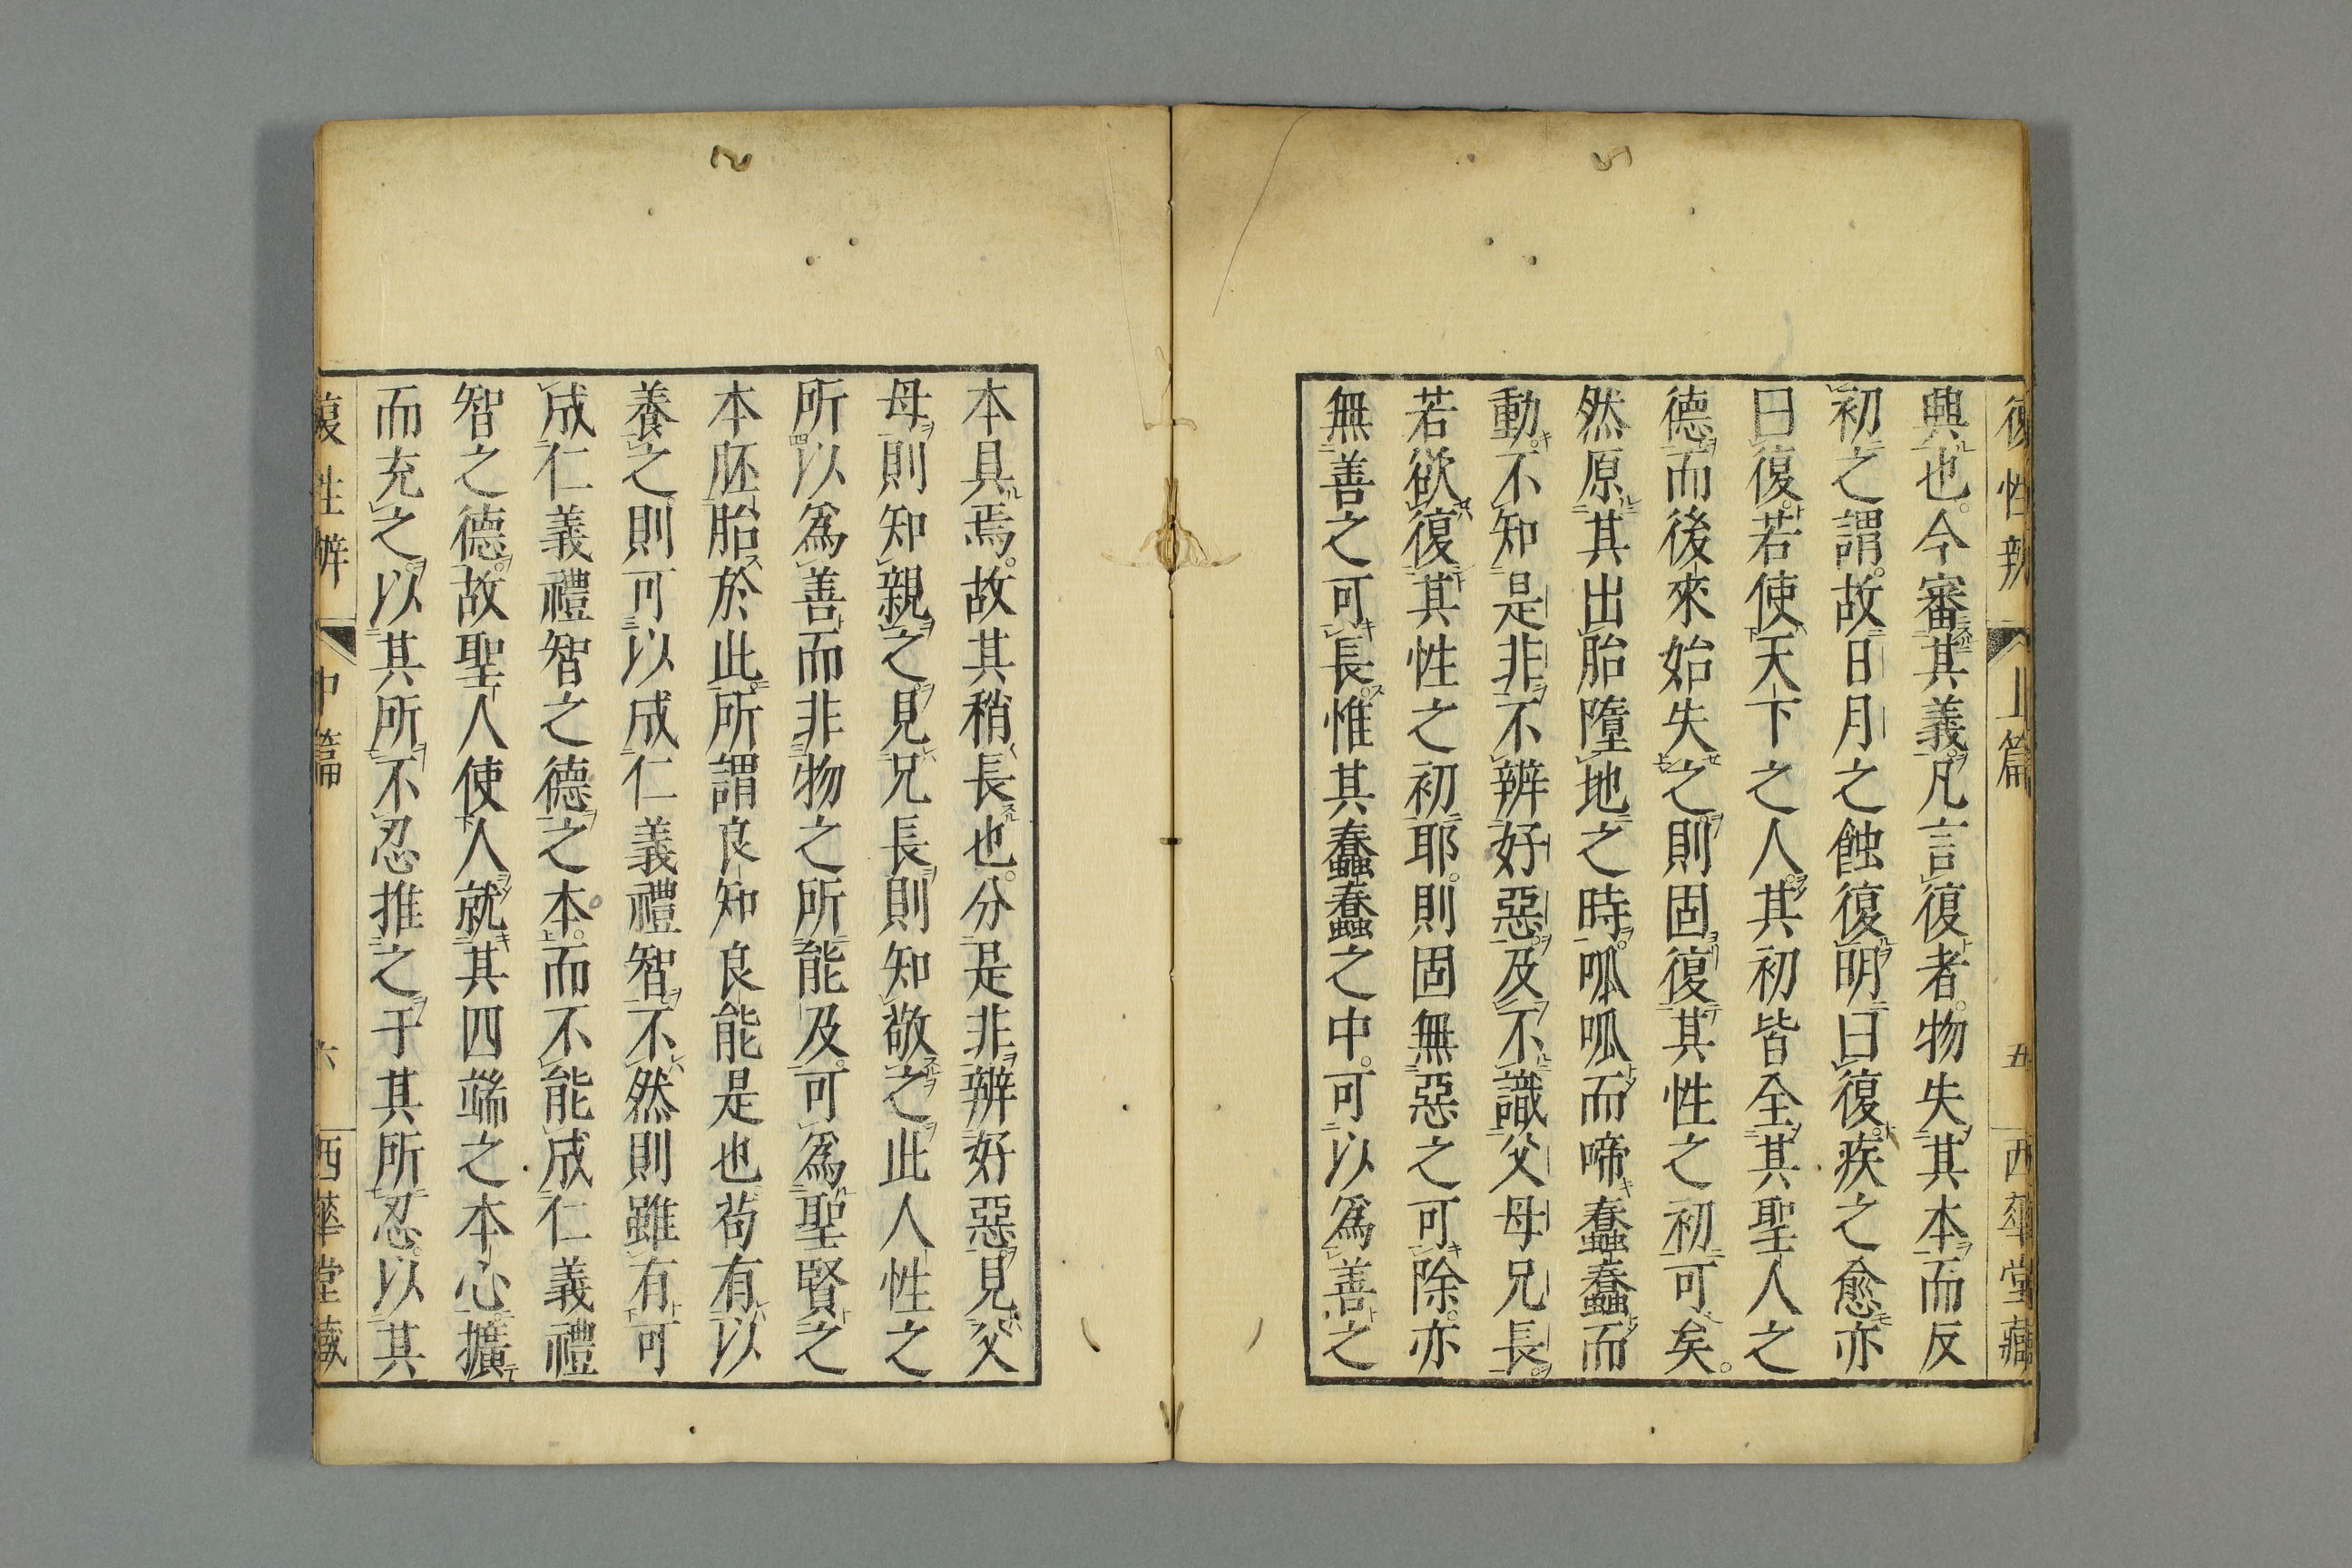 復性辨 上篇 五 西華堂藏
興也。今審其義。凡言復者。物失其本而反
初之謂。故日月之蝕復明曰復。疾之愈亦
曰復。若使天下之人。其初皆全其聖人之
德而後來始失之。則固復其性之初可矣。
然原其出胎墮地之時。呱呱而啼蠢蠢而
動。不知是非不辨好惡。及不識父母兄長。
若欲復其性之初耶。則固無惡之可除。亦
無善之可長。惟其蠢蠢之中。可以爲善之
本具焉。故其稍長也。分是非辨好惡見父
母則知親之。見兄長則知敬之。此人性之
所以爲善而非物之所能及。可爲聖賢之
本胚胎於此。所謂良知良能是也苟有以
養之。則可以成仁義禮智。不然則雖有可
成仁義禮智之德之本。而不能成仁義禮
智之德。故聖人使人就其四端之本心。擴
而充之。以其所不忍推之于其所忍。以其
復性辨 中篇 六 西華堂藏